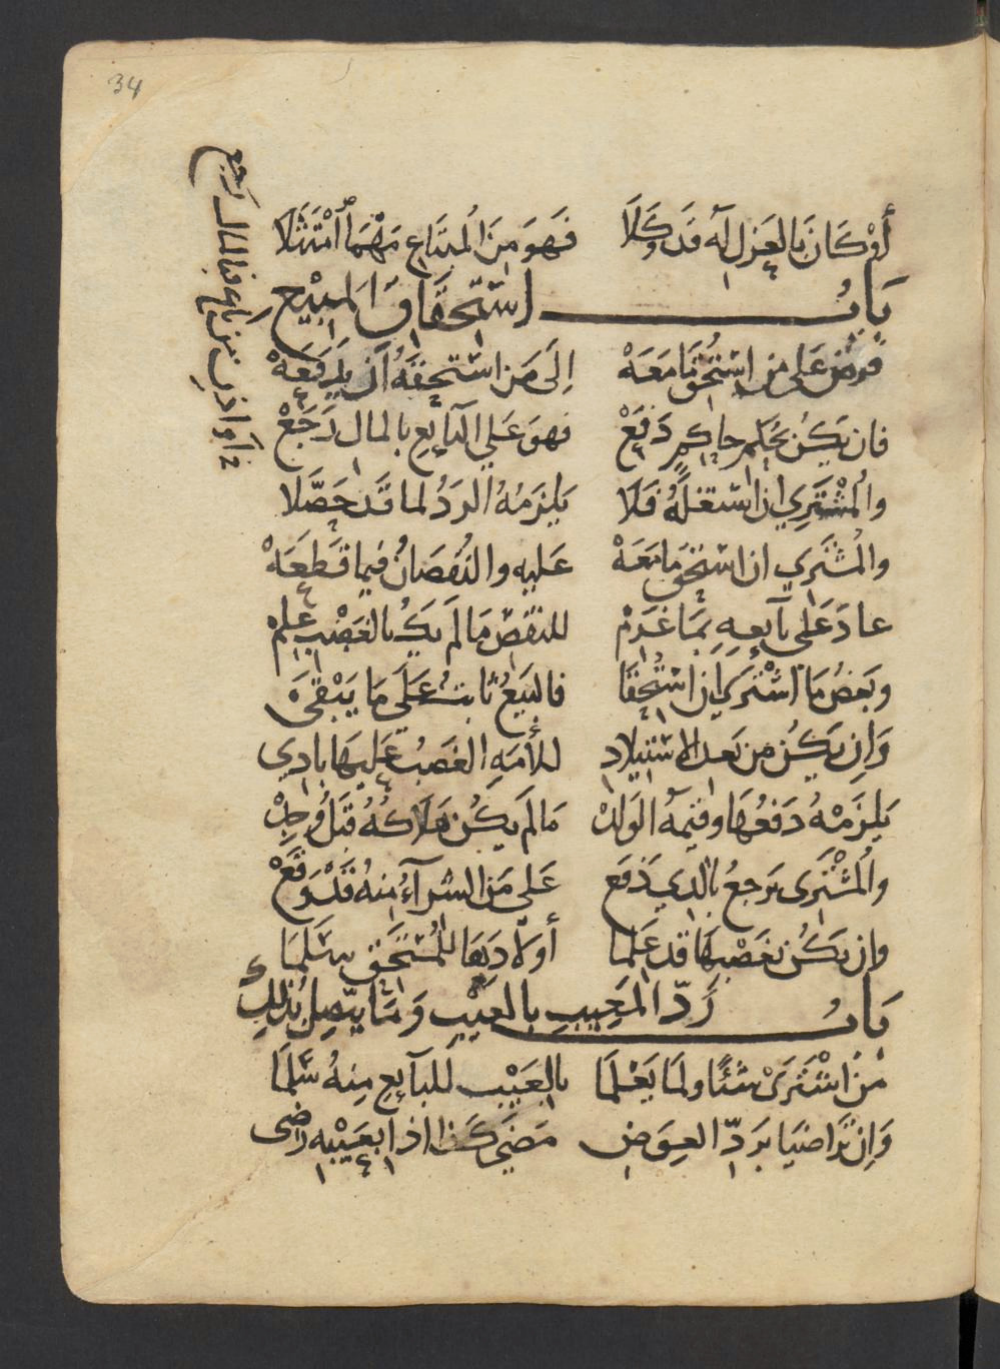 34
أَوْ كَانَ بَالعَزل لَه قَد وَكَلَا فَهوَ مِنَ المتَاعِ مَهْمَا امْتَثَلَا
بَابُ استحقَاق المَبِيْع
فرضٌ عَلى مَن استُحِقَّ مَا مَعَهْ اِلَى مَن استَحِقَّهُ اَن يَدفَعَهْ
فان يَكُن بحُكم حاكِمٍ دَفَعْ فهوَ عَلي البَآيِعِ بالمال رَجَعْ
والمُشْتَرِي ان استغلَّهُ فَلَا يَلزَمُهُ الردُ لما قَد حَصَّلَا
والمُشتَري ان استحَق مَا مَعَهْ عَليهِ والنُقصَانُ فيما قَطَعَهْ
عادَ عَلى بآيعِهِ بمَا غَرِمْ للنقصِ مَا لَم يَكُ بالغَصْبِ عِلِمْ
وبَعضُ مَا اشْتَرَي اِن استُحِقَّا فالبَيعُ ثابتُ عَلَى مَا يَبْقَى
وَاِن يَكُن مِن بَعد الاستيلاد للأمَهِ الغَصبُ عَليهَا بادِي
يَلزَمْهُ دَفعُهَا وقيمَهُ الوَلدْ مَا لَم يكُن هَلَاكهُ قبَلُ وُجِدْ
والمُشْتَرى يَرجعُ بالذي دَفَع عَلى مَن الشرآءُ مِنهُ قَد وَقَعْ
وان يَكُن بغَصْبِهَا قد عَلما أولَادَهَا للمُستَحَق سَلَمَا
بَابُ رَدّ المَعِيبِ بالعَيْبِ وَمَا يتّصِل بذلِك
مَن اشْتَرَى شَئًا ولمَا يَعْلَمَا بالعَيْب للبآيعِ مِنهُ سَّلمَا
وَاِن تَراضيَا بَردّ العِوَضِ مَضَى كَذا اذا بعَيْبِه رَضى